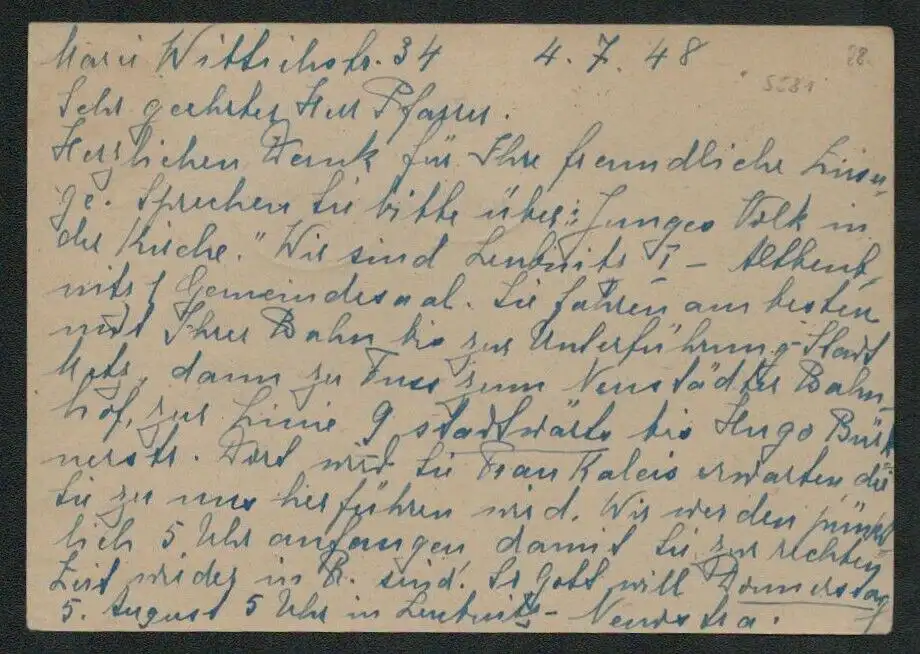 Marie Wittichstr. 34 4. 7. 48 28.
5581
Sehr geehrter Herr Pfarrer.
Herzlichen Dank für Ihre freundliche Zusa-
ge. Sprechen Sie bitte über: „Junges Volk in
der Kirche." Wir sind Leubnitz I – Altleub-
nitz 1 Gemeindesaal. Sie fahren am besten
mit Ihrer Bahn bis zur Unterführung Stadt
Metz, dann zu Fuss zum Neustädter Bahn-
hof, zur Linie 9 stadtwärts bis Hugo Bürk-
nerstr. Dort wird Sie Frau Kaleis erwarten die
Sie zu uns herführen wird. Wir werden pünkt-
lich 5 Uhr anfangen, damit Sie zur rechten
Zeit wieder in R. sind. So Gott will Donnerstag
5. August 5 Uhr in Leubnitz – Neuostra.